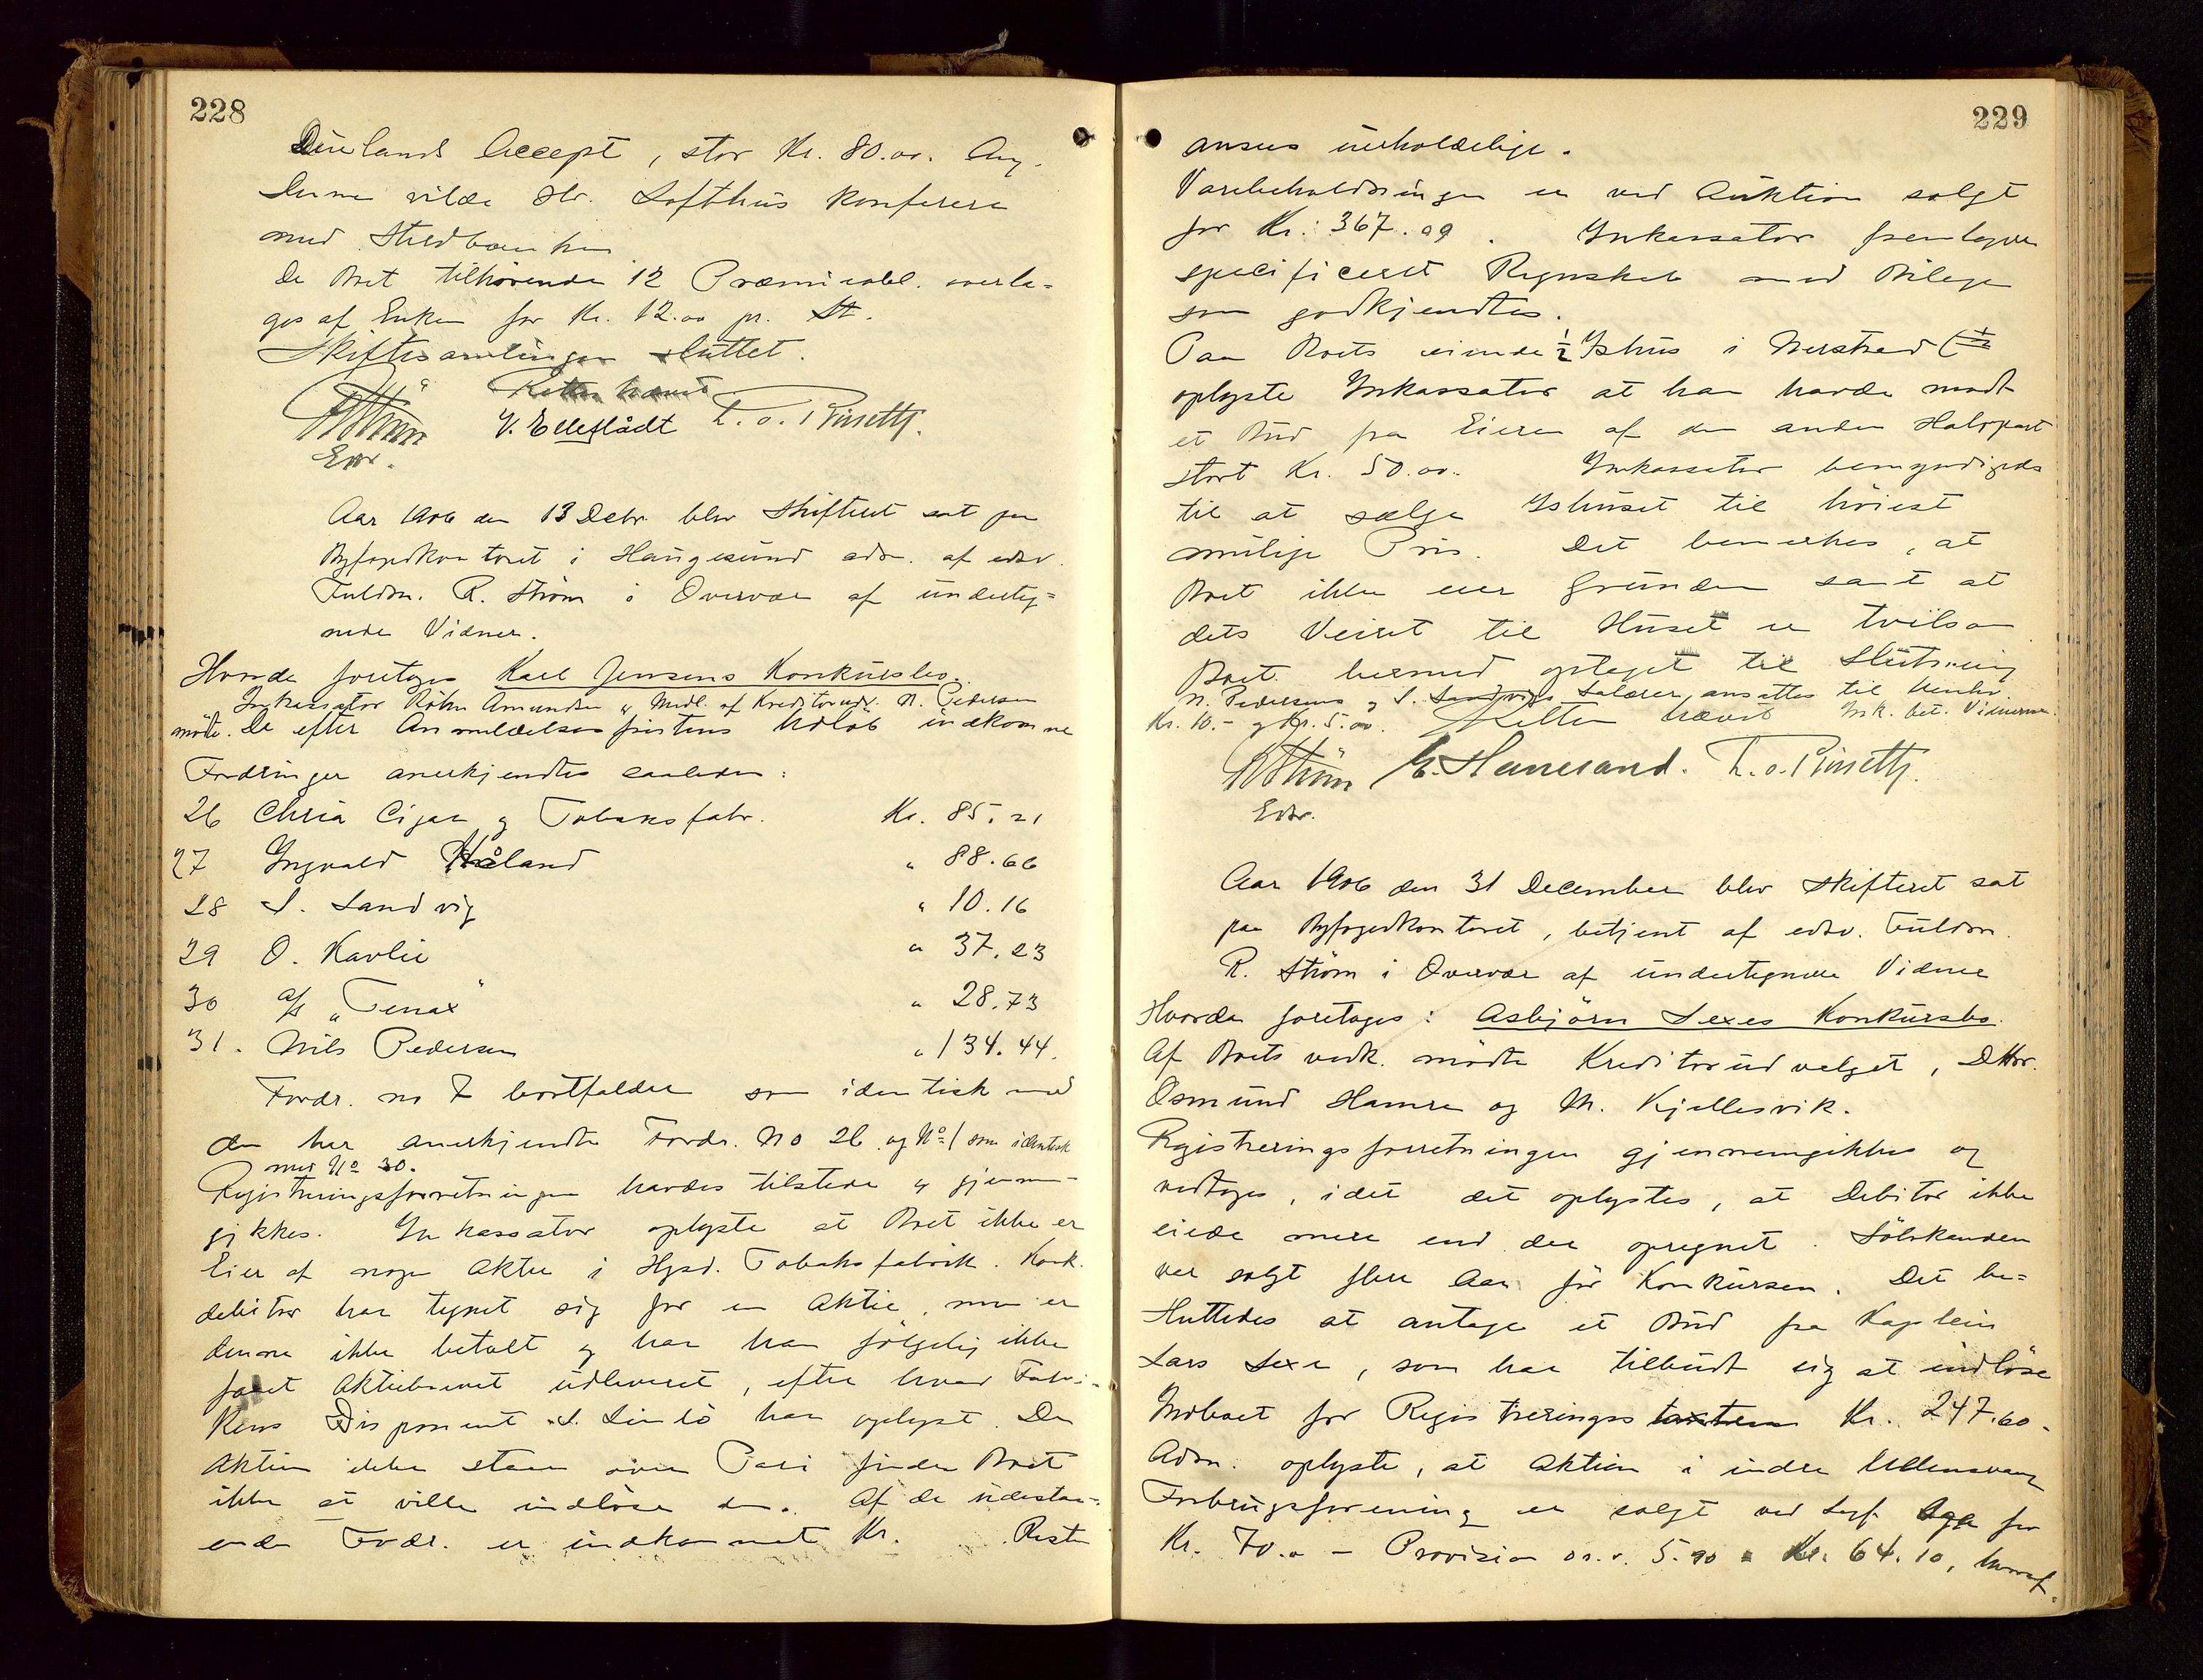 228
Duelands Accept, stor Kr. 80.00. Ang.
denne vilde Hr. Lofthus konferere
med Skildbonden
De Boet tilhørende 12 Præmieobl. overta-
ges af Enken for Kr. 12.00 pr. St.
Skiftesamlingen sluttet.
Retten hævet
RStröm V. Ellefslådt T. o. Rinseth.
Edsv.
Aar 1906 den 13 Debr. blev Skifteret sat paa
Byfogedkontoret i Haugesund adm. af edsv.
Fuldm. R. Ström i Overvær af underteg=
nede Vidner.
Hvorda foretoges Karl Jensens Konkursbo.
Inkassator Röhn Amundsen og Medl. af Kreditorudv. N. Pedersen
mödte. De efter Anmeldelsesfristens Udløb indkomne
Fordringer anerkjendtes saaledes:
26 Chria Cigar og Tobaksfabr. Kr. 85.21
27 Ingvald Håland " 88.66
28 S. Sandvig " 10.16
29 O. Kavlie " 37.23
30 A/S „Tenax" " 28.73
31. Nils Pedersen " 134.44.
Fordr. no 7 bortfalder som identisk med
den her anerkjendte Fordr. No 26. og No 1 som identisk
med No 30.
Registreringsforretningen havdes tilstede og gjennem-
gikkes. Inkassator oplyste at Boet ikke er
Eier af nogen Aktie i Hgsd. Tobaksfabrik. Konk.
debitor har tegnet sig for en Aktie, men er
denne ikke betalt og har han følgelig ikke
faaet Aktiebrevet udleveret, efter hvad Fabri-
kens Disponent S. Lindö har oplyst. Da
Aktien ikke staar over Pari finder Boet
ikke at ville indløse den. Af de udestaa-
ende Fordr. er indkommet Kr. Resten
229
ansees uerholdelige.
Varebeholdningen er ved Auktion solgt
for Kr. 367.09. Inkassator fremlagde
specificeret Regnskab med Bilage
som godkjendtes.
Paa Boets eiende ½ Ishus i
oplyste Inkassator at han havde modt.
et Bud fra Eieren af den anden Halvpart
stort Kr. 50.00. Inkassator bemyndigedes
til at sælge Ishuset til høiest
mulige Pris. Det bemerkes, at
Boet ikke eier Grunden samt at
dets Veiret til Huset er tvilsom
Boet hermed optaget til Slutning
N. Pedersens og S. Sandvigs Salærer ansattes til henhv.
Kr. 10.- og Kr. 5.00. Retten hævet Ink. bet. Vidnerne.
RStröm E. Hauesand. T. o. Rinseth.
Edsv.
Aar 1906 den 31 December blev Skifteret sat
paa Byfogedkontoret, betjent af edsv. Fuldm.
R. Ström i Overvær af undertegnede Vidner
Hvorda foretoges: Asbjørn Sexes Konkursbo.
Af Boets vedk. mødte Kreditorudvalget, DHrr.
Osmund Hamre og M. Kjellesvik.
Registreringsforretningen gjennemgikkes og
vedtoges, idet det oplystes, at Debitor ikke
eiede mere end der opregnet. Sölvkanden
var solgt flere Aar før Konkursen. Det be=
sluttedes at antage et Bud fra Kaptein
Lars Sexe, som har tilbudt sig at indløse
Indboet for Registreringstaxten Kr. 247.60.
Adm. oplyste, at Aktien i indre Ullensvang
Forbrugsforening er solgt ved Lgf. Aga for
Kr. 70.00 - Provision o.s.v. 5.90 = Kr. 64.10, hvoraf